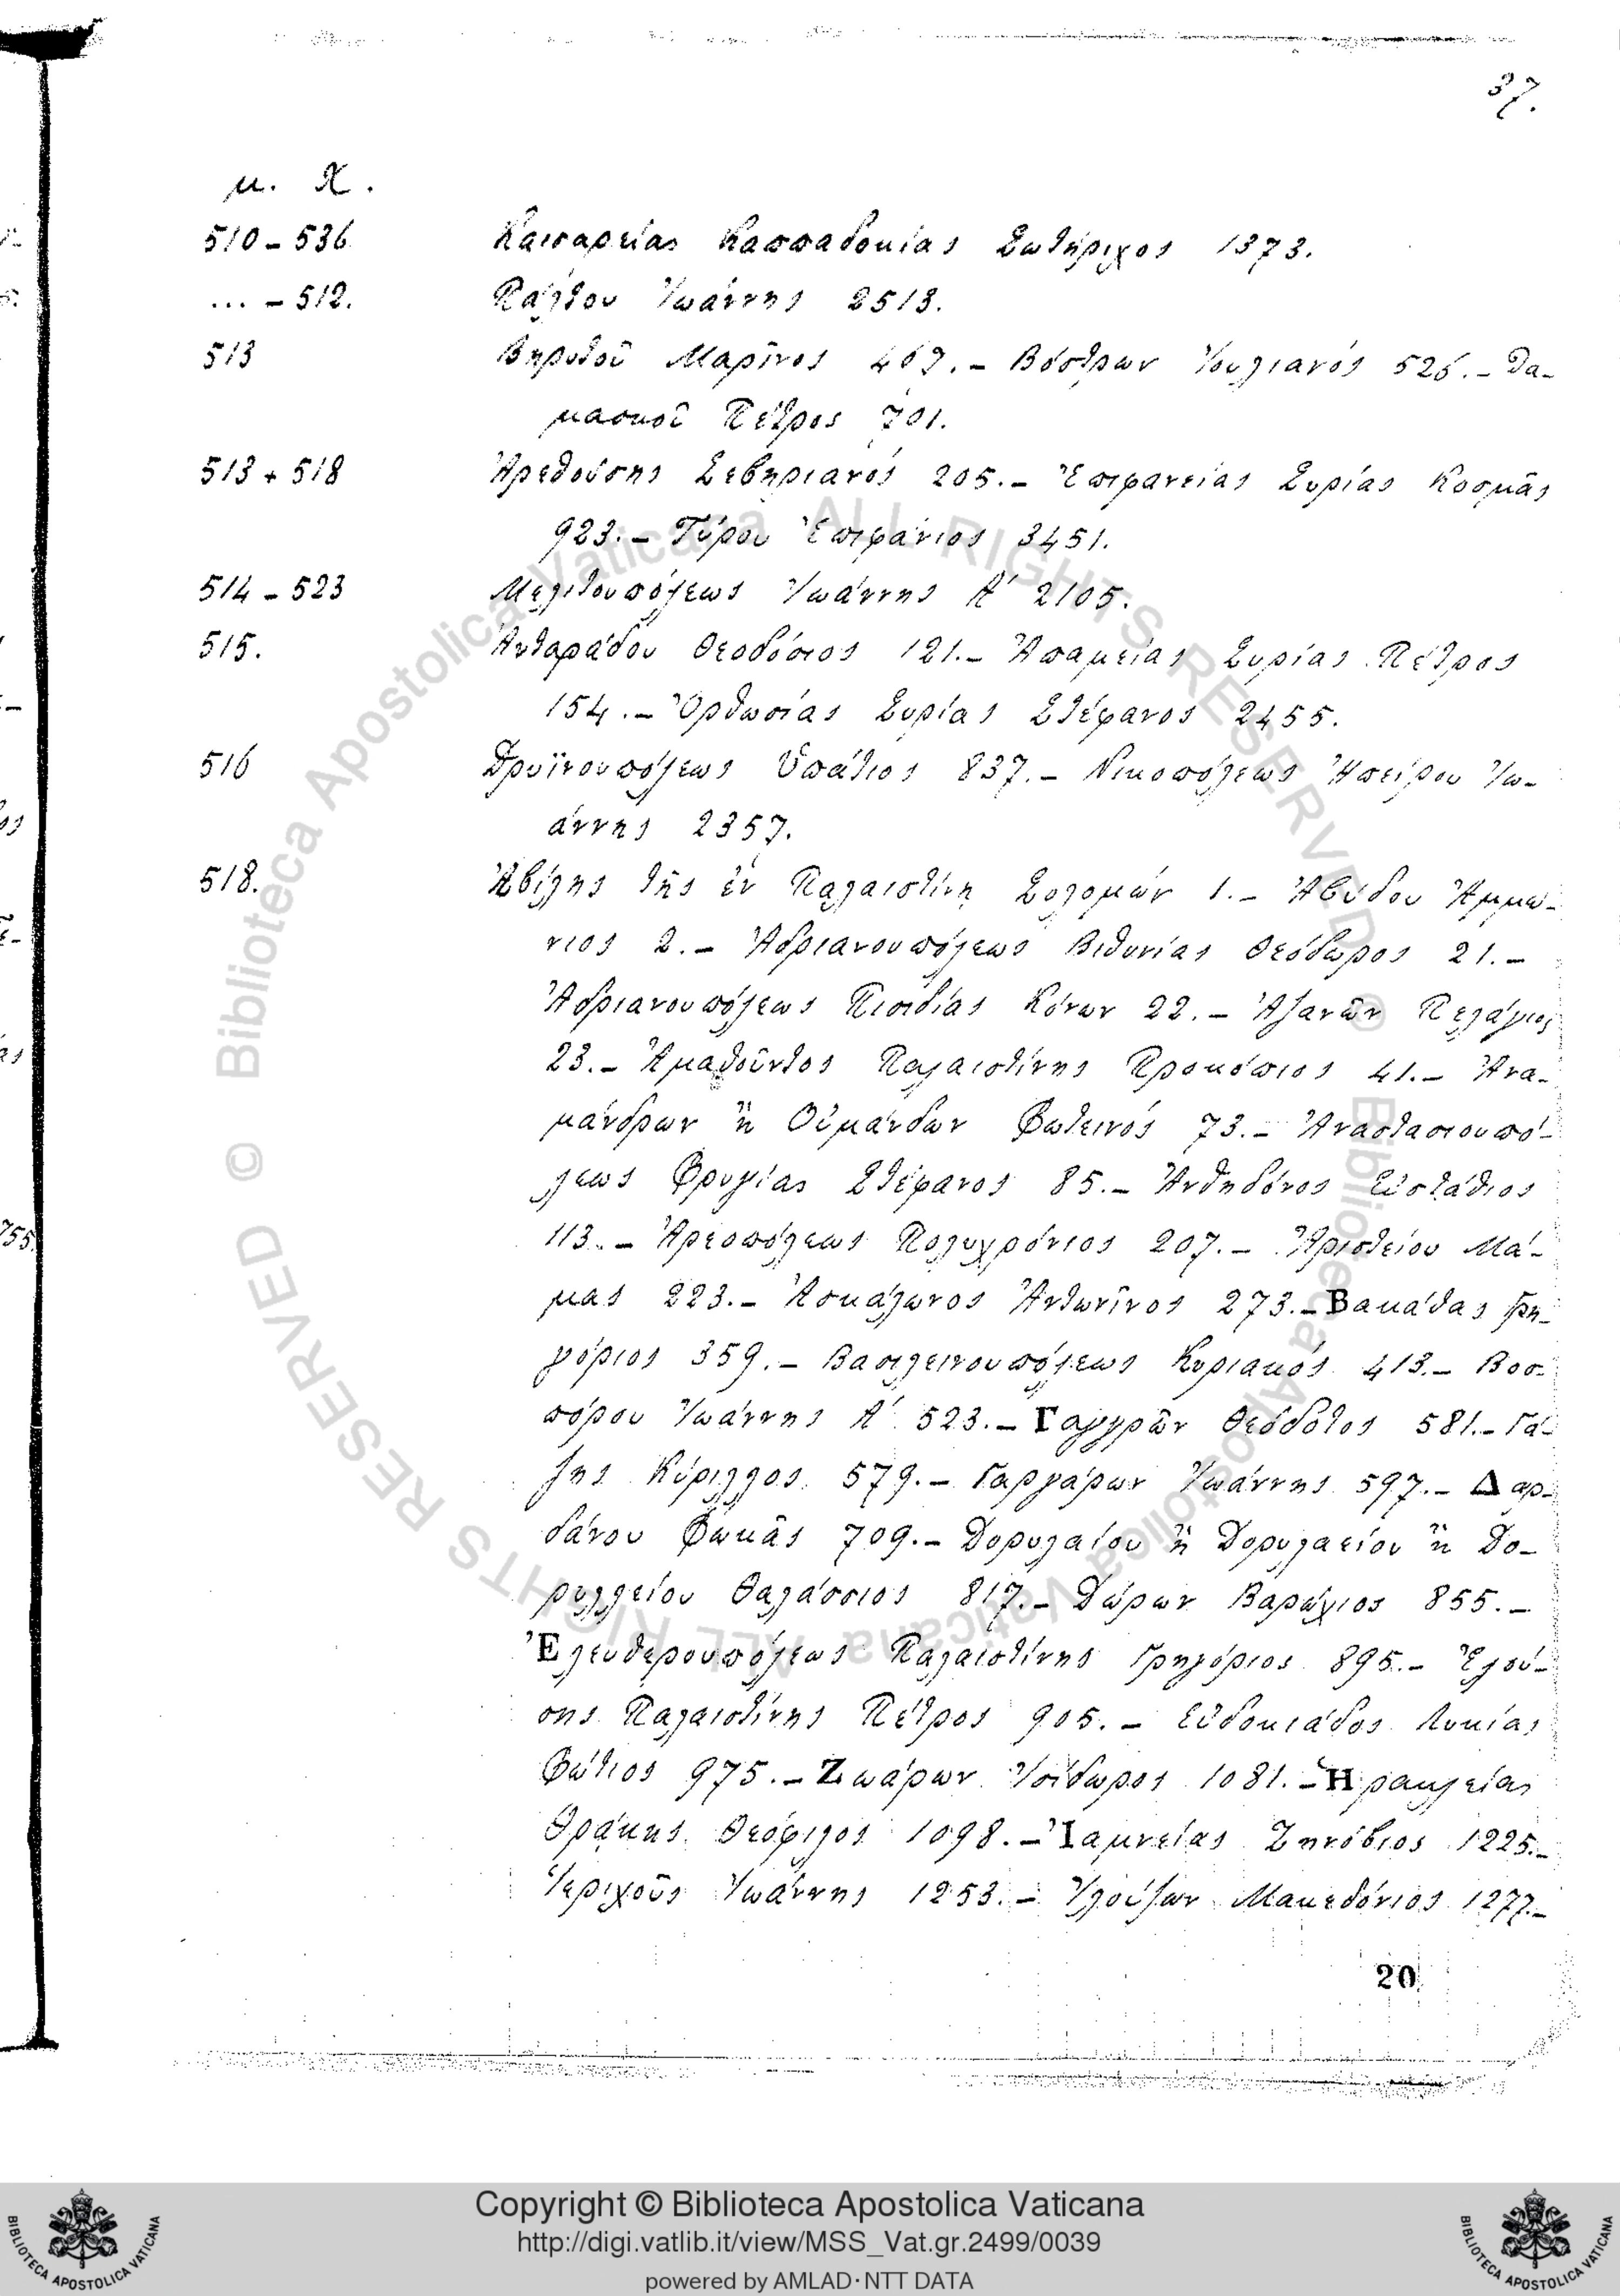 37.
μ. Χ.
510 - 536 Καισαρείας Καππαδοκίας Σωτήριχος 1373.
... - 512. Πάλτου Ἰωάννης 2513.
513 Βηρυτοῦ Μαρῖνος 469. - Βόστρων Ἰουλιανός 526. - Δα-
μασκοῦ Πέτρος 701.
513 + 518 Ἀρεθούσης Σεβηριανός 205. - Ἐπιφανείας Συρίας Κοσμᾶς
923. - Τύρου Ἐπιφάνιος 3451.
514 - 523 Μελιτουπόλεως Ἰωάννης Α΄ 2105.
515. Ἀνταράδου Θεοδόσιος 121. - Ἀπαμείας Συρίας Πέτρος
154. - Ὀρθωσίας Συρίας Στέφανος 2455.
516 Δρυϊνουπόλεως Ὑπάτιος 837. - Νικοπόλεως Ἠπείρου Ἰω-
άννης 2357.
518. Ἀβίλης τῆς ἐν Παλαιστίνῃ Σολομών 1. - Ἀβύδου Ἀμμώ-
νιος 2. - Ἀδριανουπόλεως Βιθυνίας Θεόδωρος 21. -
Ἀδριανουπόλεως Πισιδίας Κόνων 22. - Ἀζανῶν Πελάγιος
23. - Ἀμαθοῦντος Παλαιστίνης Προκόπιος 41. - Ἀνα-
μάνδρων ἢ Οὐμάνδων Φωτεινός 73. - Ἀναστασιουπό-
λεως Φρυγίας Στέφανος 85. - Ἀνθηδόνος Εὐστάθιος
113. - Ἀρεοπόλεως Πολυχρόνιος 207. - Ἀριστείου Μά-
μας 223. - Ἀσκάλωνος Ἀντωνῖνος 273. - Βακάθας Γρη-
γόριος 359. - Βασιλεινουπόλεως Κυριακός 413. - Βοσ-
πόρου Ἰωάννης Α΄ 523. - Γαγγρῶν Θεόδοτος 581. - Γά-
ζης Κύριλλος 579. - Γαργάρων Ἰωάννης 597. - Δαρ-
δάνου Φωκᾶς 709. - Δορυλαίου ἢ Δορυλαείου ἢ Δο-
ρυλλείου Θαλάσσιος 817. - Δώρων Βαρώχιος 855. -
Ἐλευθερουπόλεως Παλαιστίνης Γρηγόριος 895. - Ἐλού-
σης Παλαιστίνης Πέτρος 905. - Εὐδοκιάδος Λυκίας
Φώτιος 975. - Ζωάρων Ἰσίδωρος 1081. - Ἡρακλείας
Θρᾴκης Θεόφιλος 1098. - Ἰαμνείας Ζηνόβιος 1225. -
Ἱεριχοῦς Ἰωάννης 1253. - Ἰλούζων Μακεδόνιος 1277. -
20
Copyright © Biblioteca Apostolica Vaticana
http://digi.vatlib.it/view/MSS_Vat.gr.2499/0039
powered by AMLAD·NTT DATA